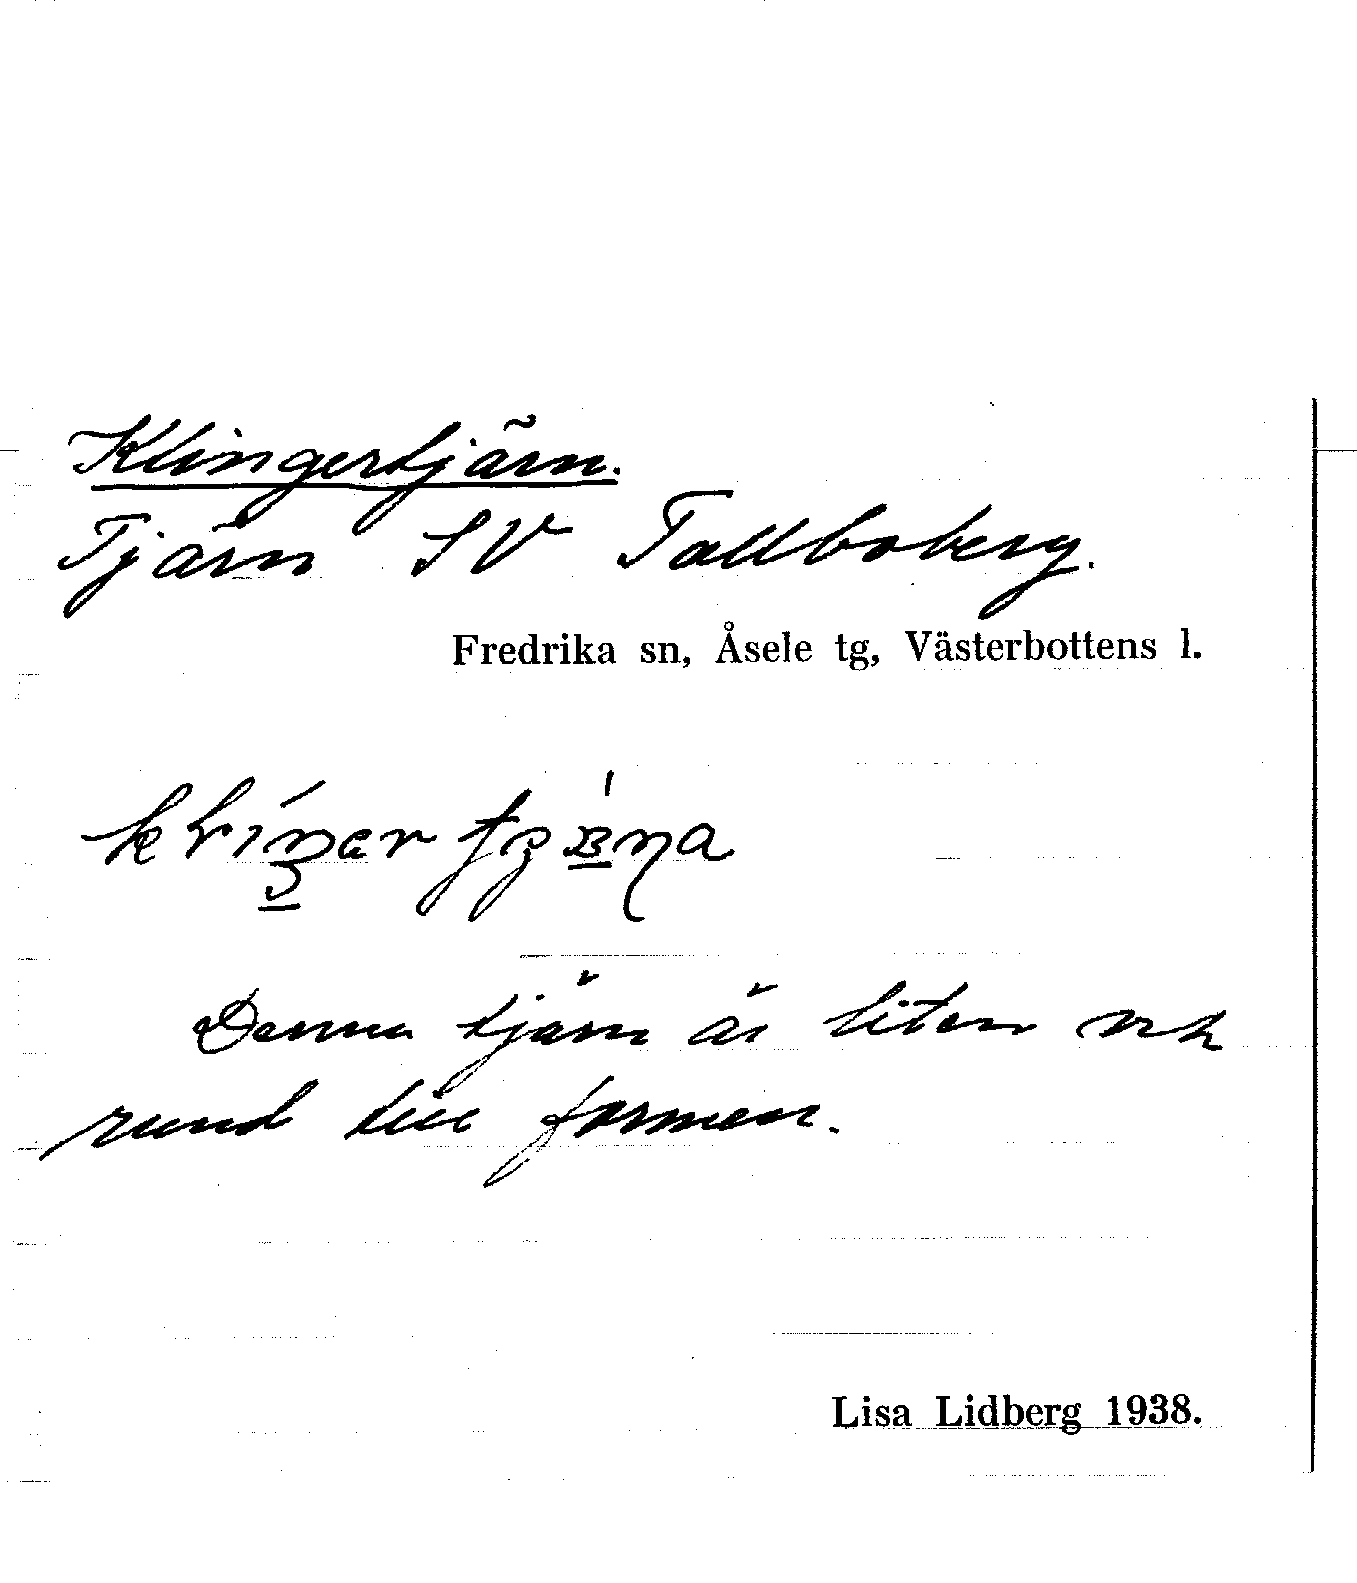 Klingertjärn.
Tjärn SV Tallboberg.
Fredrika sn, Åsele tg, Västerbottens l.
Denna tjärn är liten och
rund till formen.
Lisa Lidberg 1938.